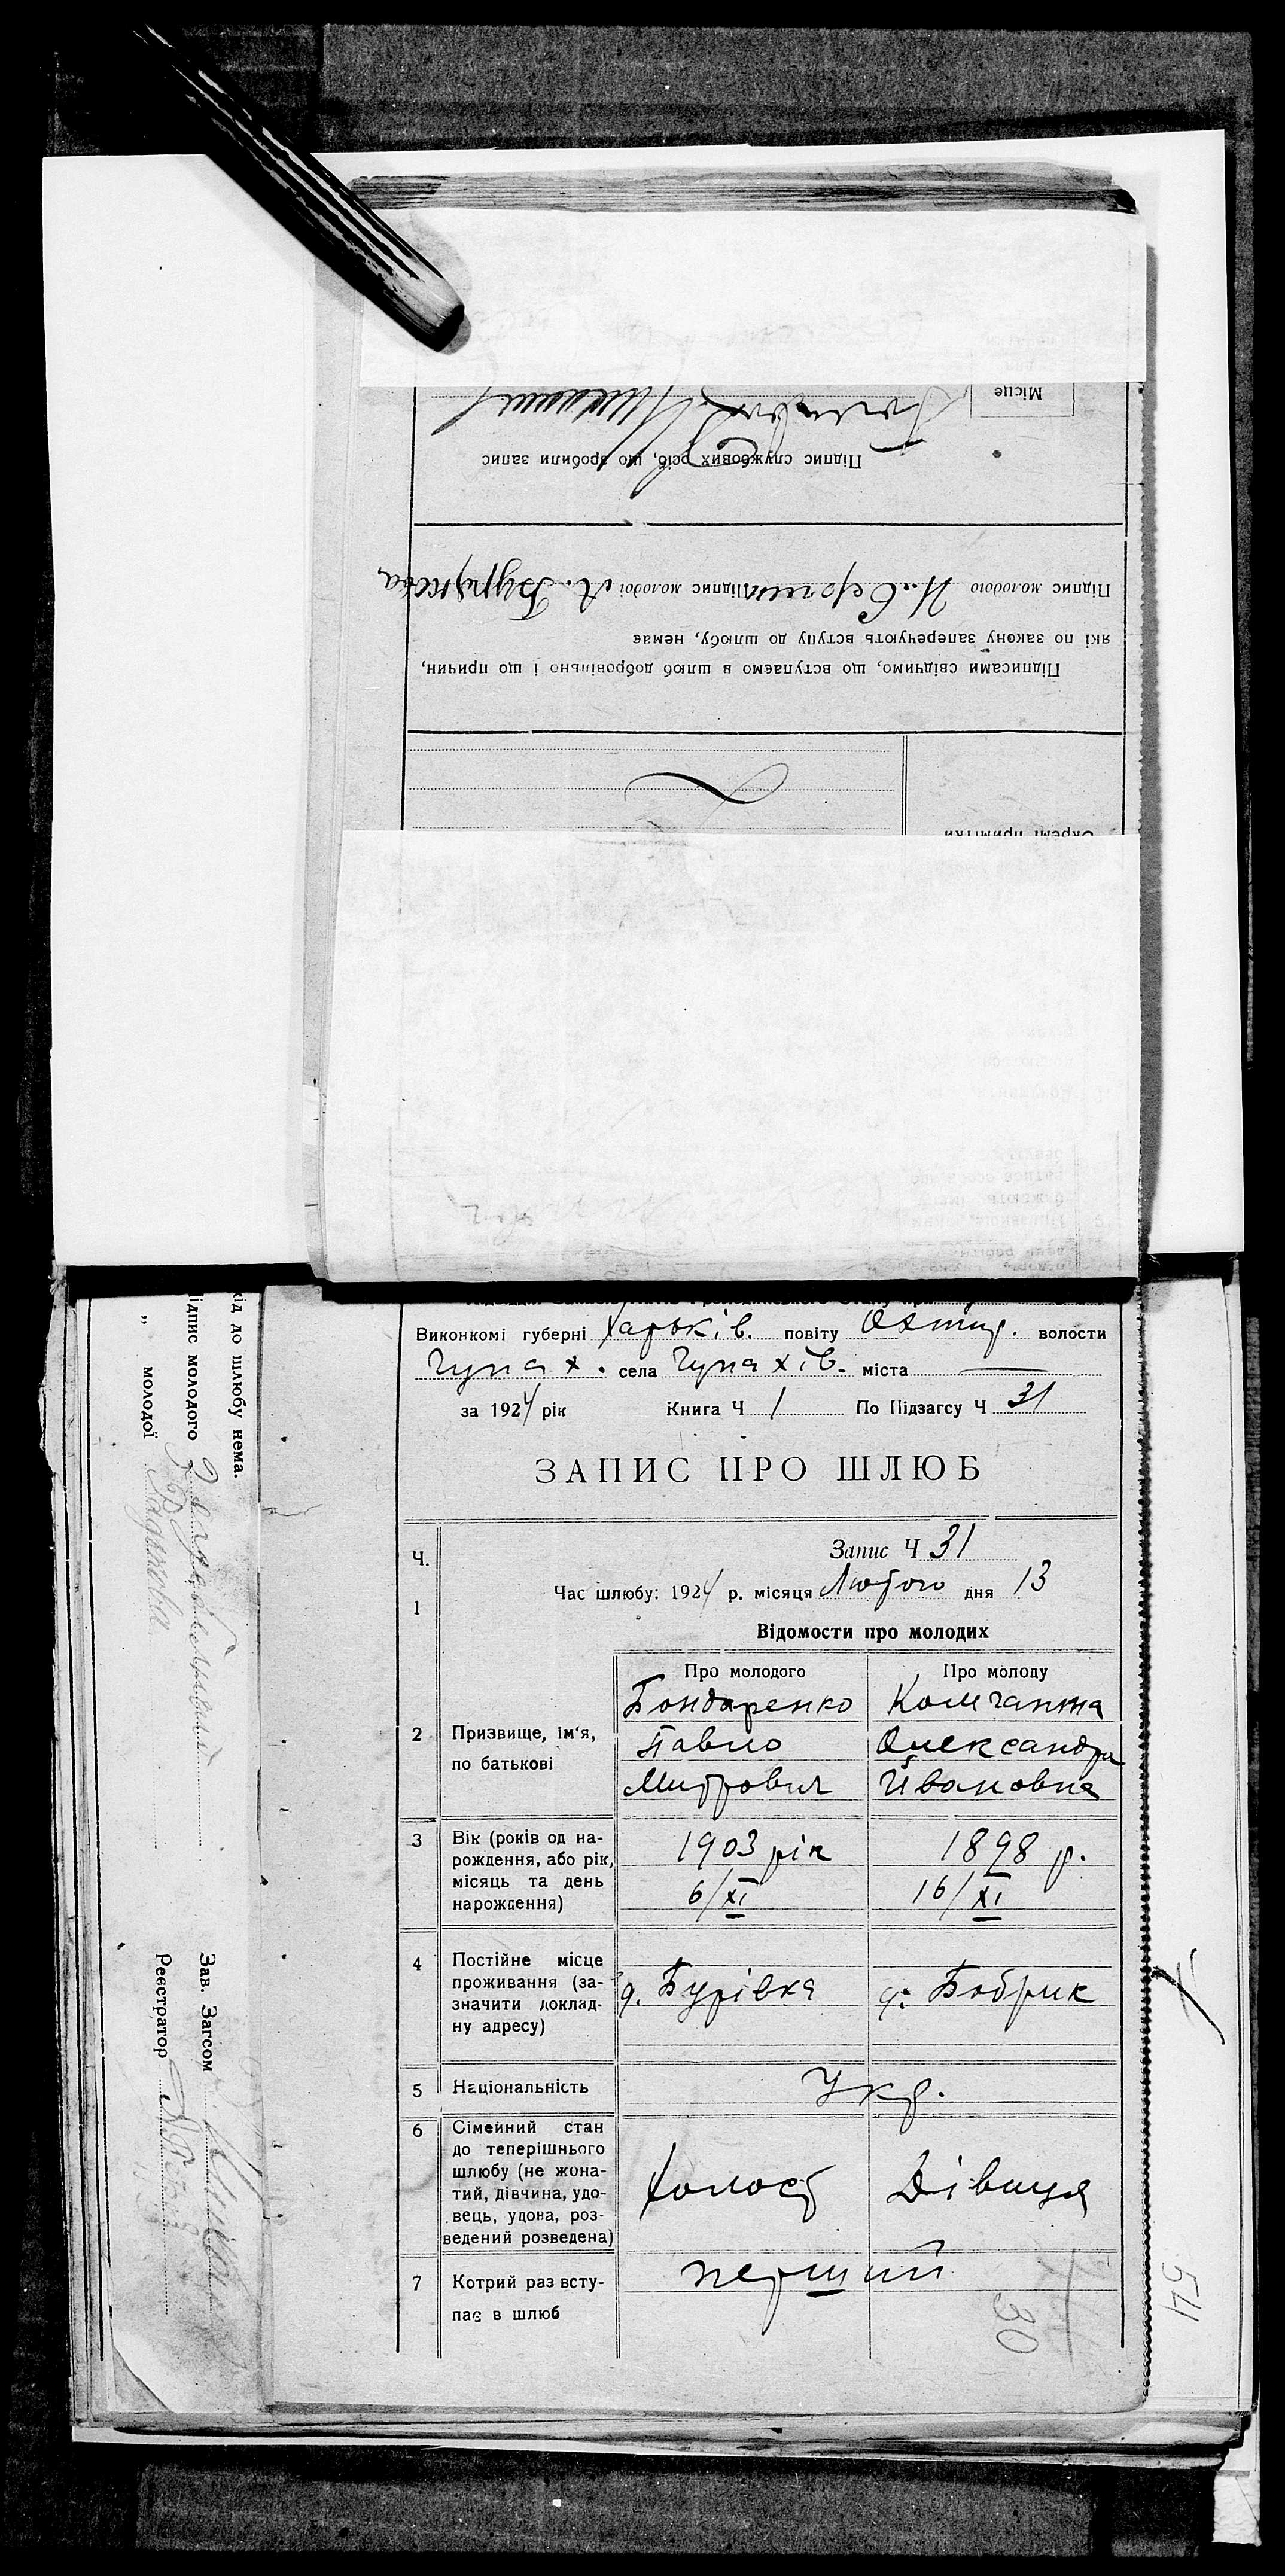 Місце
Підпис службових осіб, що зробили запис
Підпис молодого Підпис молодої
які по закону заперечують вступу до шлюбу, немає
Підписами свідчимо, що вступаємо в шлюб добровільно і що причин,
Окремі примітки
Виконкомі губерні Харьків. повіту Охтир. волости
Чупах. села Чупахів. міста
за 1924 рік Книга Ч 1 По Підзагсу Ч 31
ЗАПИС ПРО ШЛЮБ
Ч. Запис Ч 31
1 Час шлюбу: 1924 р. місяця Лютого дня 13
Відомости про молодих
Про молодого Про молоду
2 Призвище, ім'я,
по батькові
Бондаренко
Павло
Митрович
Олександра
Ивановна
3 Вік (років од на-
рождення, або рік,
місяць та день
нарождення)
1903 рік 1898 р.
6/XI 16/XI
4 Постійне місце
проживання (за-
значити доклад-
ну адресу)
Бурівка Бобрик
5 Національність Укр.
6 Сімейний стан
до теперішнього
шлюбу (не жона-
тий, дівчина, удо-
вець, удова, роз-
ведений розведена)
Холост Дівиця
7 Котрий раз всту-
пає в шлюб
перший
30
54
хід до шлюбу нема.
Підпис молодого
„ молодої
Зав. Загсом
Реєстратор